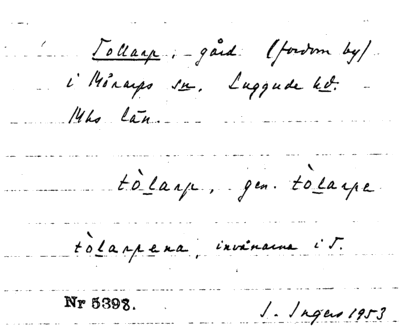 Tollarp, gård (fordom by)
i Mörarps sn. Luggude hd.
Mhs län.
tòlarp, gen. tòlarpe
tòlarpena, invånarna i T.
Nr 5398. I. Ingers 1953